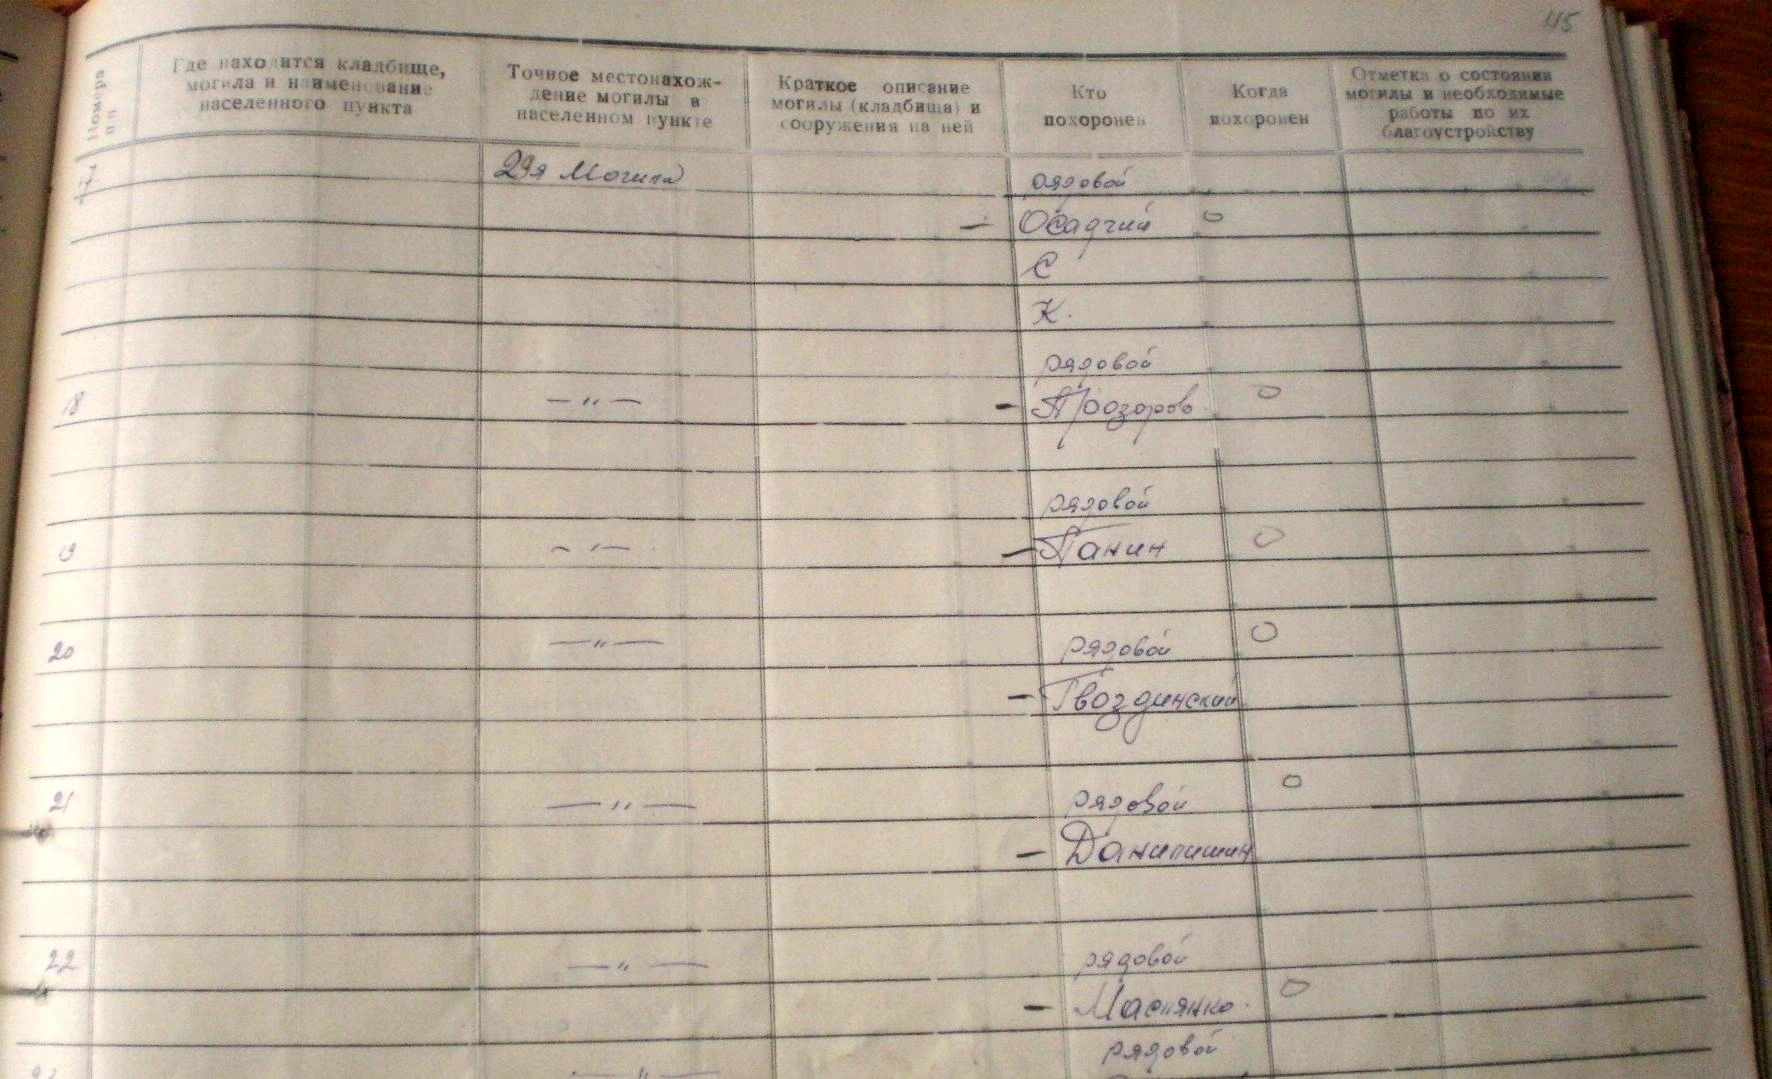 115
Номера пп
Где находится кладбище,
могила и наименование
населенного пункта
Точное местонахож-
дение могилы в
населенном пункте
Краткое описание
могилы (кладбища) и
сооружения на ней
Кто
похоронен
Когда
похоронен
Отметка о состоянии
могилы и необходимые
работы по их
благоустройству
17 29я Могила рядовой
— Осадчий 0
С
К.
рядовой
18 — " — — Прозоров 0
рядовой
19 — " — — Панин 0
20 — " — рядовой 0
— Гвоздинский
21 — " — рядовой 0
— Данилишин
22 — " — рядовой
— Маслянко 0
рядовой
23 — " —